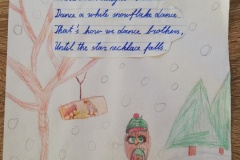 Dance a while snowflake dance.
That's how we dance brothers,
Until the star necklace falls.